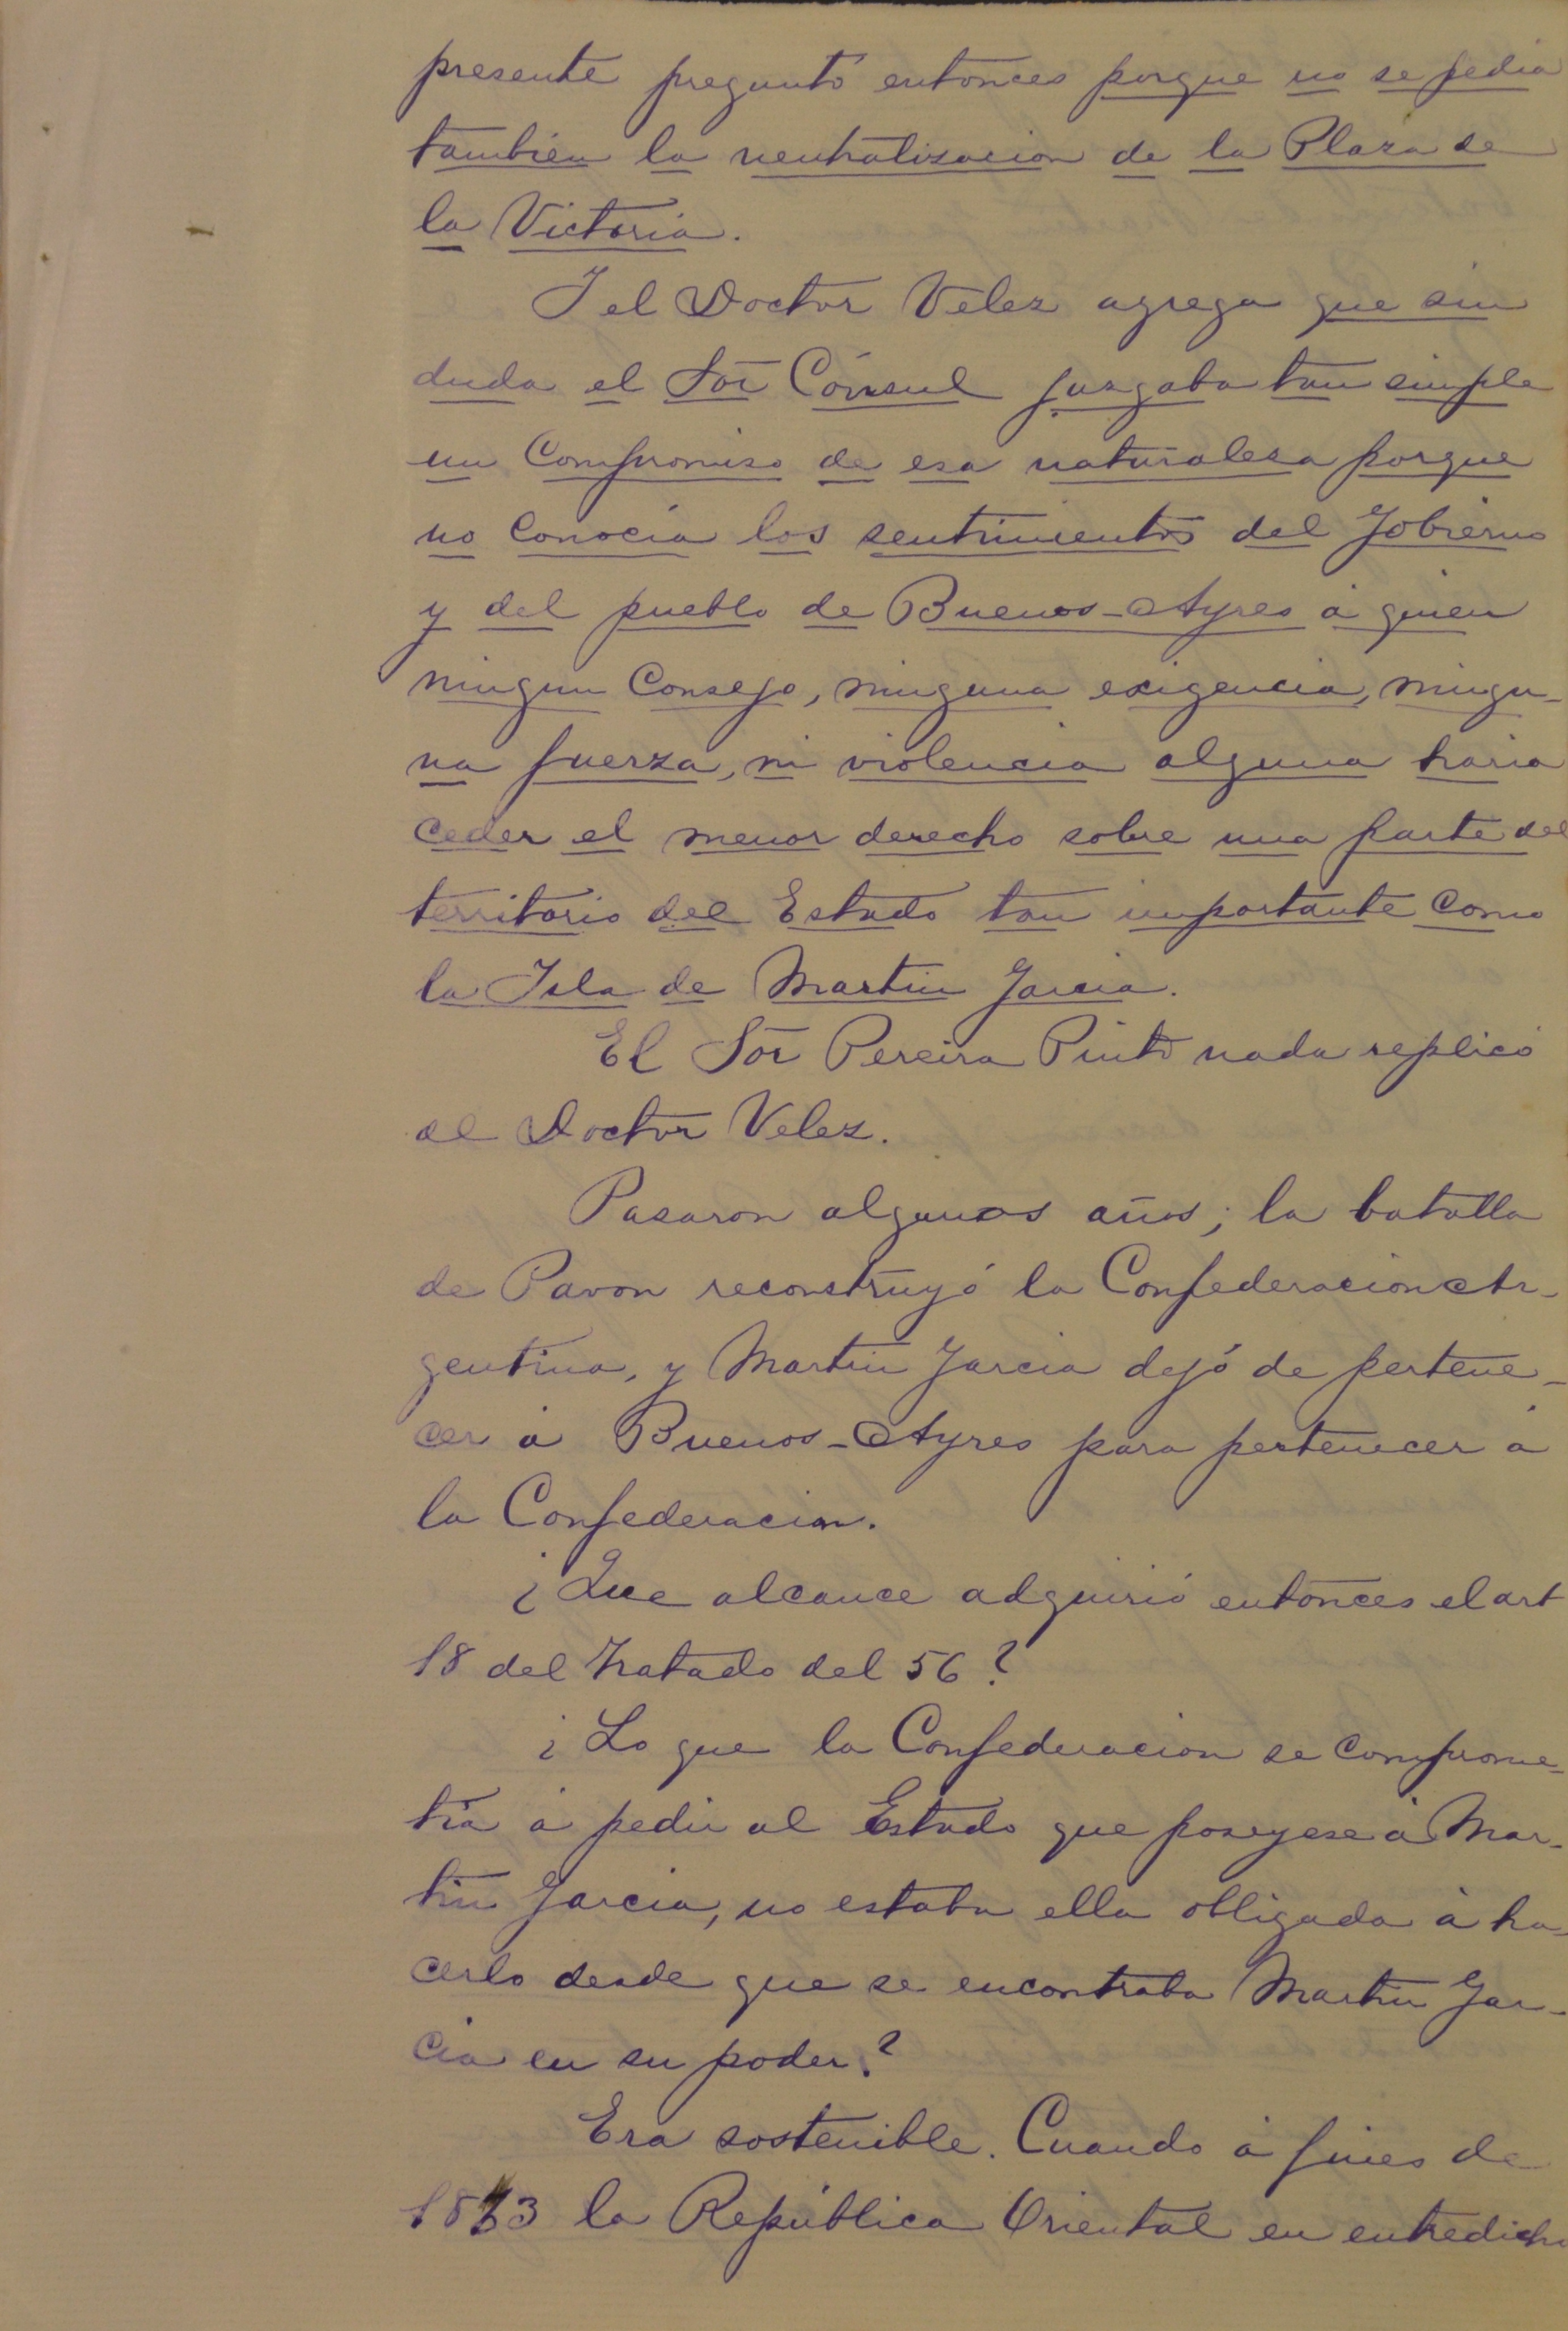 presente preguntó entonces porque no se pedia
tambien la neutralizacion de la Plaza de
la Victoria.
I el Doctor Velez agrega que sin
duda el Sor Cónsul juzgaba tan simple
un Compromiso de esa naturaleza porque
no Conocia los sentimientos del Gobierno
y del pueblo de Buenos-Ayres á quien
ningun Consejo, ninguna exigencia, ningu-
na fuerza, ni violencia alguna haria
Ceder el menor derecho sobre una parte del
territorio del Estado tan importante Como
la Isla de Martin Garcia.
El Sor Pereira Pinto nada replicó
al Doctor Velez.
Pasaron algunos años; la batalla
de Pavon reconstruyó la Confederacion Ar-
gentina, y Martin Garcia dejó de pertene-
cer á Buenos-Ayres para pertenecer á
la Confederacion.
¿Que alcance adquirió entonces el art
18 del tratado del 56?
¿Lo que la Confederacion se comprome-
tia á pedir al Estado que poseyese á Mar-
tin Garcia, no estaba ella obligada á ha-
cerlo desde que se encontraba Martin Gar-
cia en su poder?
Era sostenible. Cuando á fines de
la República Oriental en entredicho